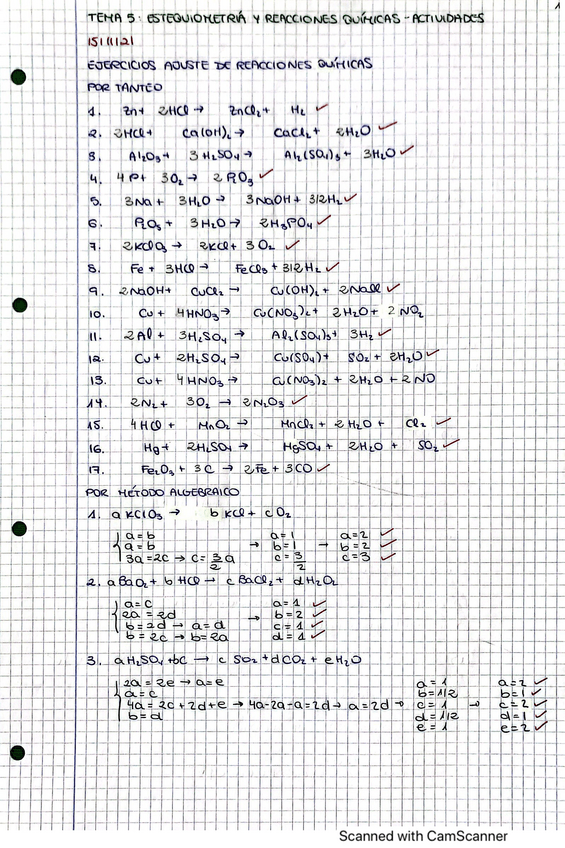 1
TEMA 5: ESTEQUIOMETRÍA Y REACCIONES QUÍMICAS - ACTIVIDADES
15/11/21
EJERCICIOS AJUSTE DE REACCIONES QUÍMICAS
POR TANTEO
1. Zn + 2HCl → ZnCl₂ + H₂ ✓
2. 2HCl + Ca(OH)₂ → CaCl₂ + 2H₂O ✓
3. Al₂O₃ + 3H₂SO₄ → Al₂(SO₄)₃ + 3H₂O ✓
4. 4P + 3O₂ → 2P₂O₃ ✓
5. 3Na + 3H₂O → 3NaOH + 3/2H₂ ✓
6. P₂O₅ + 3H₂O → 2H₃PO₄ ✓
7. 2KClO₃ → 2KCl + 3O₂ ✓
8. Fe + 3HCl → FeCl₃ + 3/2H₂ ✓
9. 2NaOH + CuCl₂ → Cu(OH)₂ + 2NaCl ✓
10. Cu + 4HNO₃ → Cu(NO₃)₂ + 2H₂O + 2NO₂
11. 2Al + 3H₂SO₄ → Al₂(SO₄)₃ + 3H₂ ✓
12. Cu + 2H₂SO₄ → Cu(SO₄) + SO₂ + 2H₂O ✓
13. Cu + 4HNO₃ → Cu(NO₃)₂ + 2H₂O + 2NO
14. 2N₂ + 3O₂ → 2N₂O₃ ✓
15. 4HCl + MnO₂ → MnCl₂ + 2H₂O + Cl₂ ✓
16. Hg + 2H₂SO₄ → HgSO₄ + 2H₂O + SO₂ ✓
17. Fe₂O₃ + 3C → 2Fe + 3CO ✓
POR MÉTODO ALGEBRAICO
1. a KClO₃ → b KCl + c O₂
a = b → a = 1 → a = 2 ✓
a = b b = 1 b = 2 ✓
3a = 2c → c = 3/2 a c = 3/2 c = 3 ✓
2. a BaO₂ + b HCl → c BaCl₂ + d H₂O₂
a = c → a = 1 ✓
2a = 2d b = 2 ✓
b = 2d → a = d c = 1 ✓
b = 2c → b = 2a d = 1 ✓
3. a H₂SO₄ + b C → c SO₂ + d CO₂ + e H₂O
2a = 2e → a = e a = 1 a = 2 ✓
a = c b = 1/2 b = 1 ✓
4a = 2c + 2d + e → 4a - 2a - a = 2d → a = 2d → c = 1 → c = 2 ✓
b = d d = 1/2 d = 1 ✓
e = 1 e = 2 ✓
Scanned with CamScanner